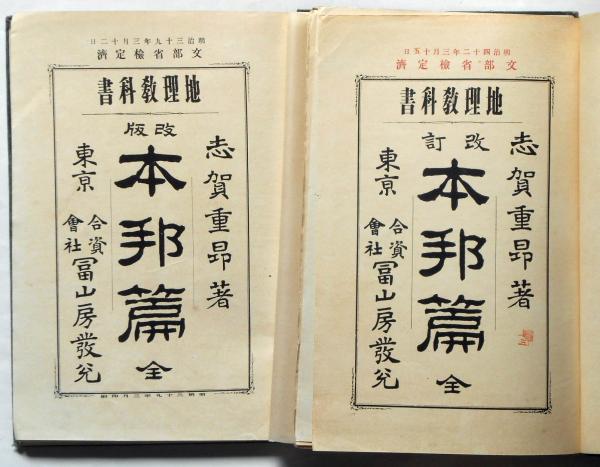 明治三十九年三月十二日
文部省檢定濟
地理敎科書
改版
志賀重昂著
本邦篇
全
東京
合資
會社
冨山房發兌
明治三十九年三月印刷
明治四十二年三月十五日
文部省檢定濟
地理敎科書
改訂
志賀重昂著
本邦篇
全
東京
合資
會社
冨山房發兌